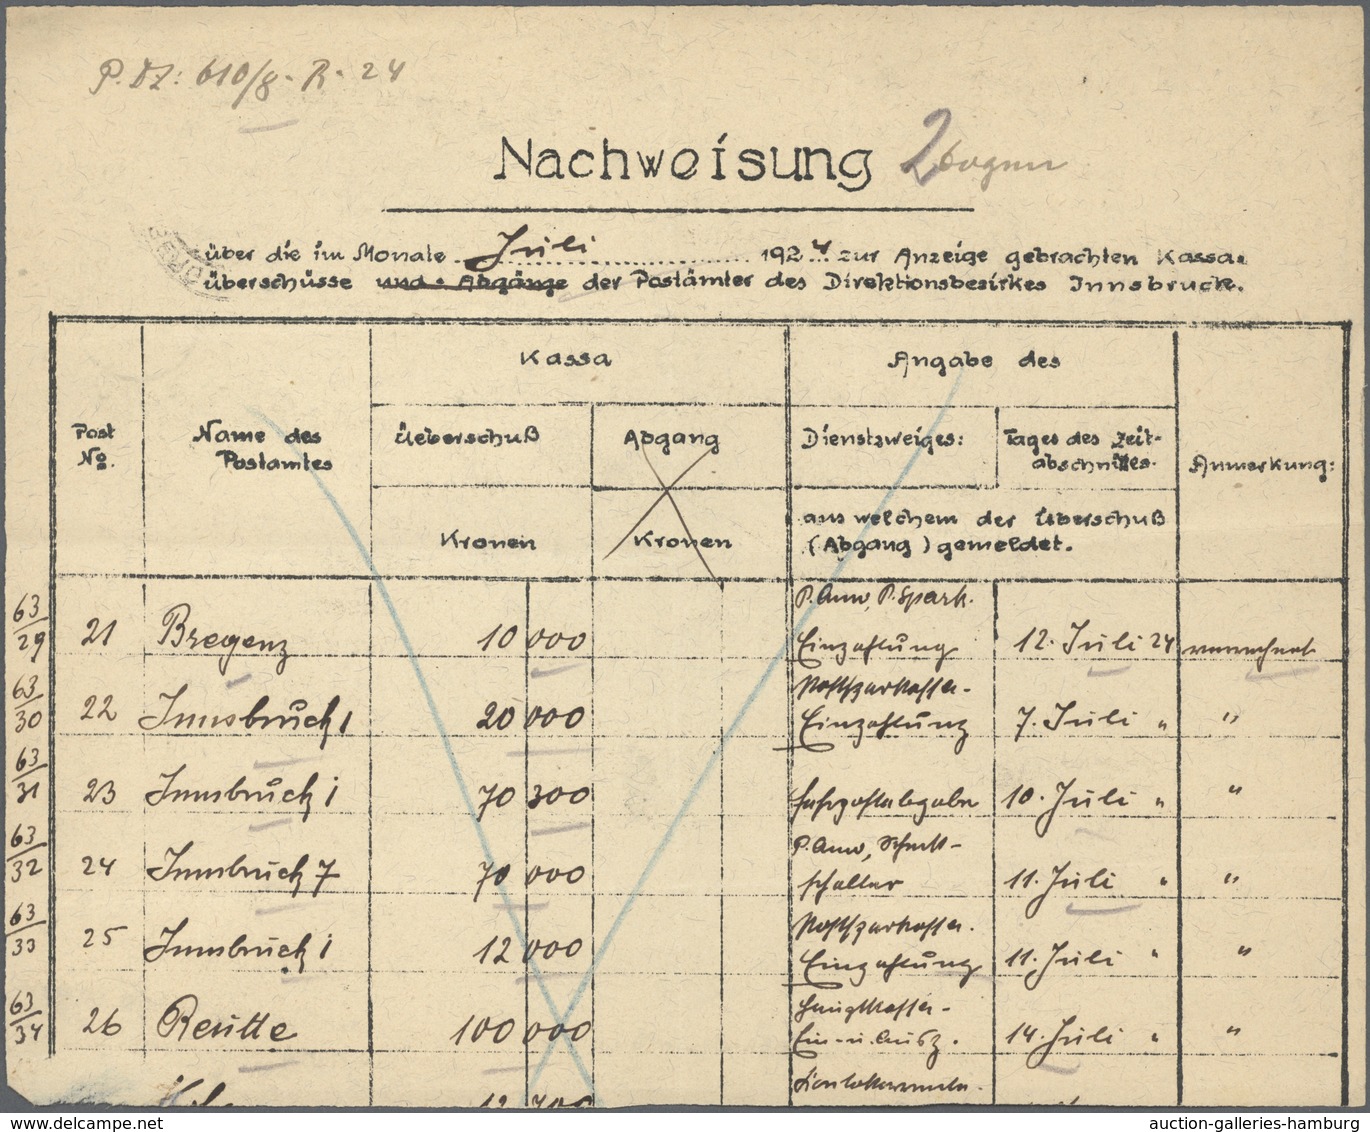 P. DZ: 610/8- R- 24
Nachweisung 2 bogen
über die im Monate Juli 1924 zur Anzeige gebrachten Kassa-
überschüsse und Abgänge der Postämter des Direktionsbezirkes Innsbruck.
Kassa Angabe des
Post No. Name des Postamtes Ueberschuß Abgang Dienstzweiges: Tages des Zeit-abschnittes. Anmerkung:
Kronen Kronen aus welchem der Überschuß
(Abgang) gemeldet.
P. Anw, P. Spark.
63/29 21 Bregenz 10 000 Einzahlung 12. Juli 24 verrechnet
Postsparkassa-
63/30 22 Innsbruck 1 20 000 Einzahlung 7. Juli " "
63/31 23 Innsbruck 1 70 300 10. Juli " "
P. Anw, Schnitt-
63/32 24 Innsbruck 7 70 000 schalter 11. Juli " "
Postsparkassa.
63/33 25 Innsbruck 1 12 000 Einzahlung 11. Juli " "
Hauptkassa-
63/34 26 Reutte 100 000 Ein- u. Ausz. 14. Juli " "
12 700
www.delcampe.net auction-galleries-hamburg